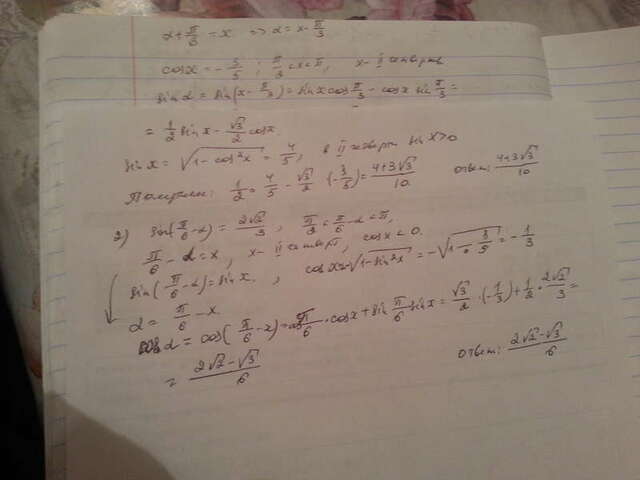 α+π/3 = x => α = x - π/3
cos x = -3/5 ; π/2 < x < π, x - II четверть
sin α = sin(x - π/3) = sin x cos π/3 - cos x sin π/3 =
= 1/2 sin x - √3/2 cos x.
sin x = √(1 - cos²x) = 4/5, в II четверти sin x > 0
Получаем: 1/2 · 4/5 - √3/2 · (-3/5) = (4+3√3)/10 ответ: (4+3√3)/10
2) sin(π/6 - α) = 2√2/3, π/2 < π/6 - α < π,
π/6 - α = x, x - II четверть, cos x < 0.
sin(π/6 - α) = sin x. , cos x = -√(1 - sin²x) = -√(1 - 8/9) = -1/3
α = π/6 - x.
cos α = cos(π/6 - x) = cos π/6 · cos x + sin π/6 sin x = √3/2 · (-1/3) + 1/2 · 2√2/3 =
= (2√2 - √3)/6 ответ: (2√2 - √3)/6